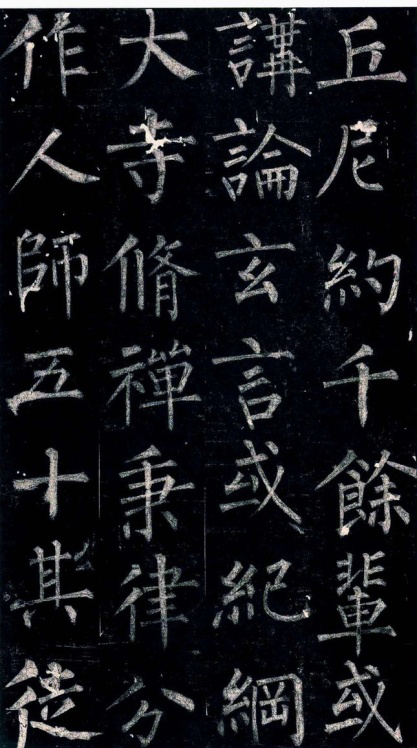 丘尼約千餘輩或
講論玄言或紀綱
大寺脩禪秉律分
作人師五十其徒